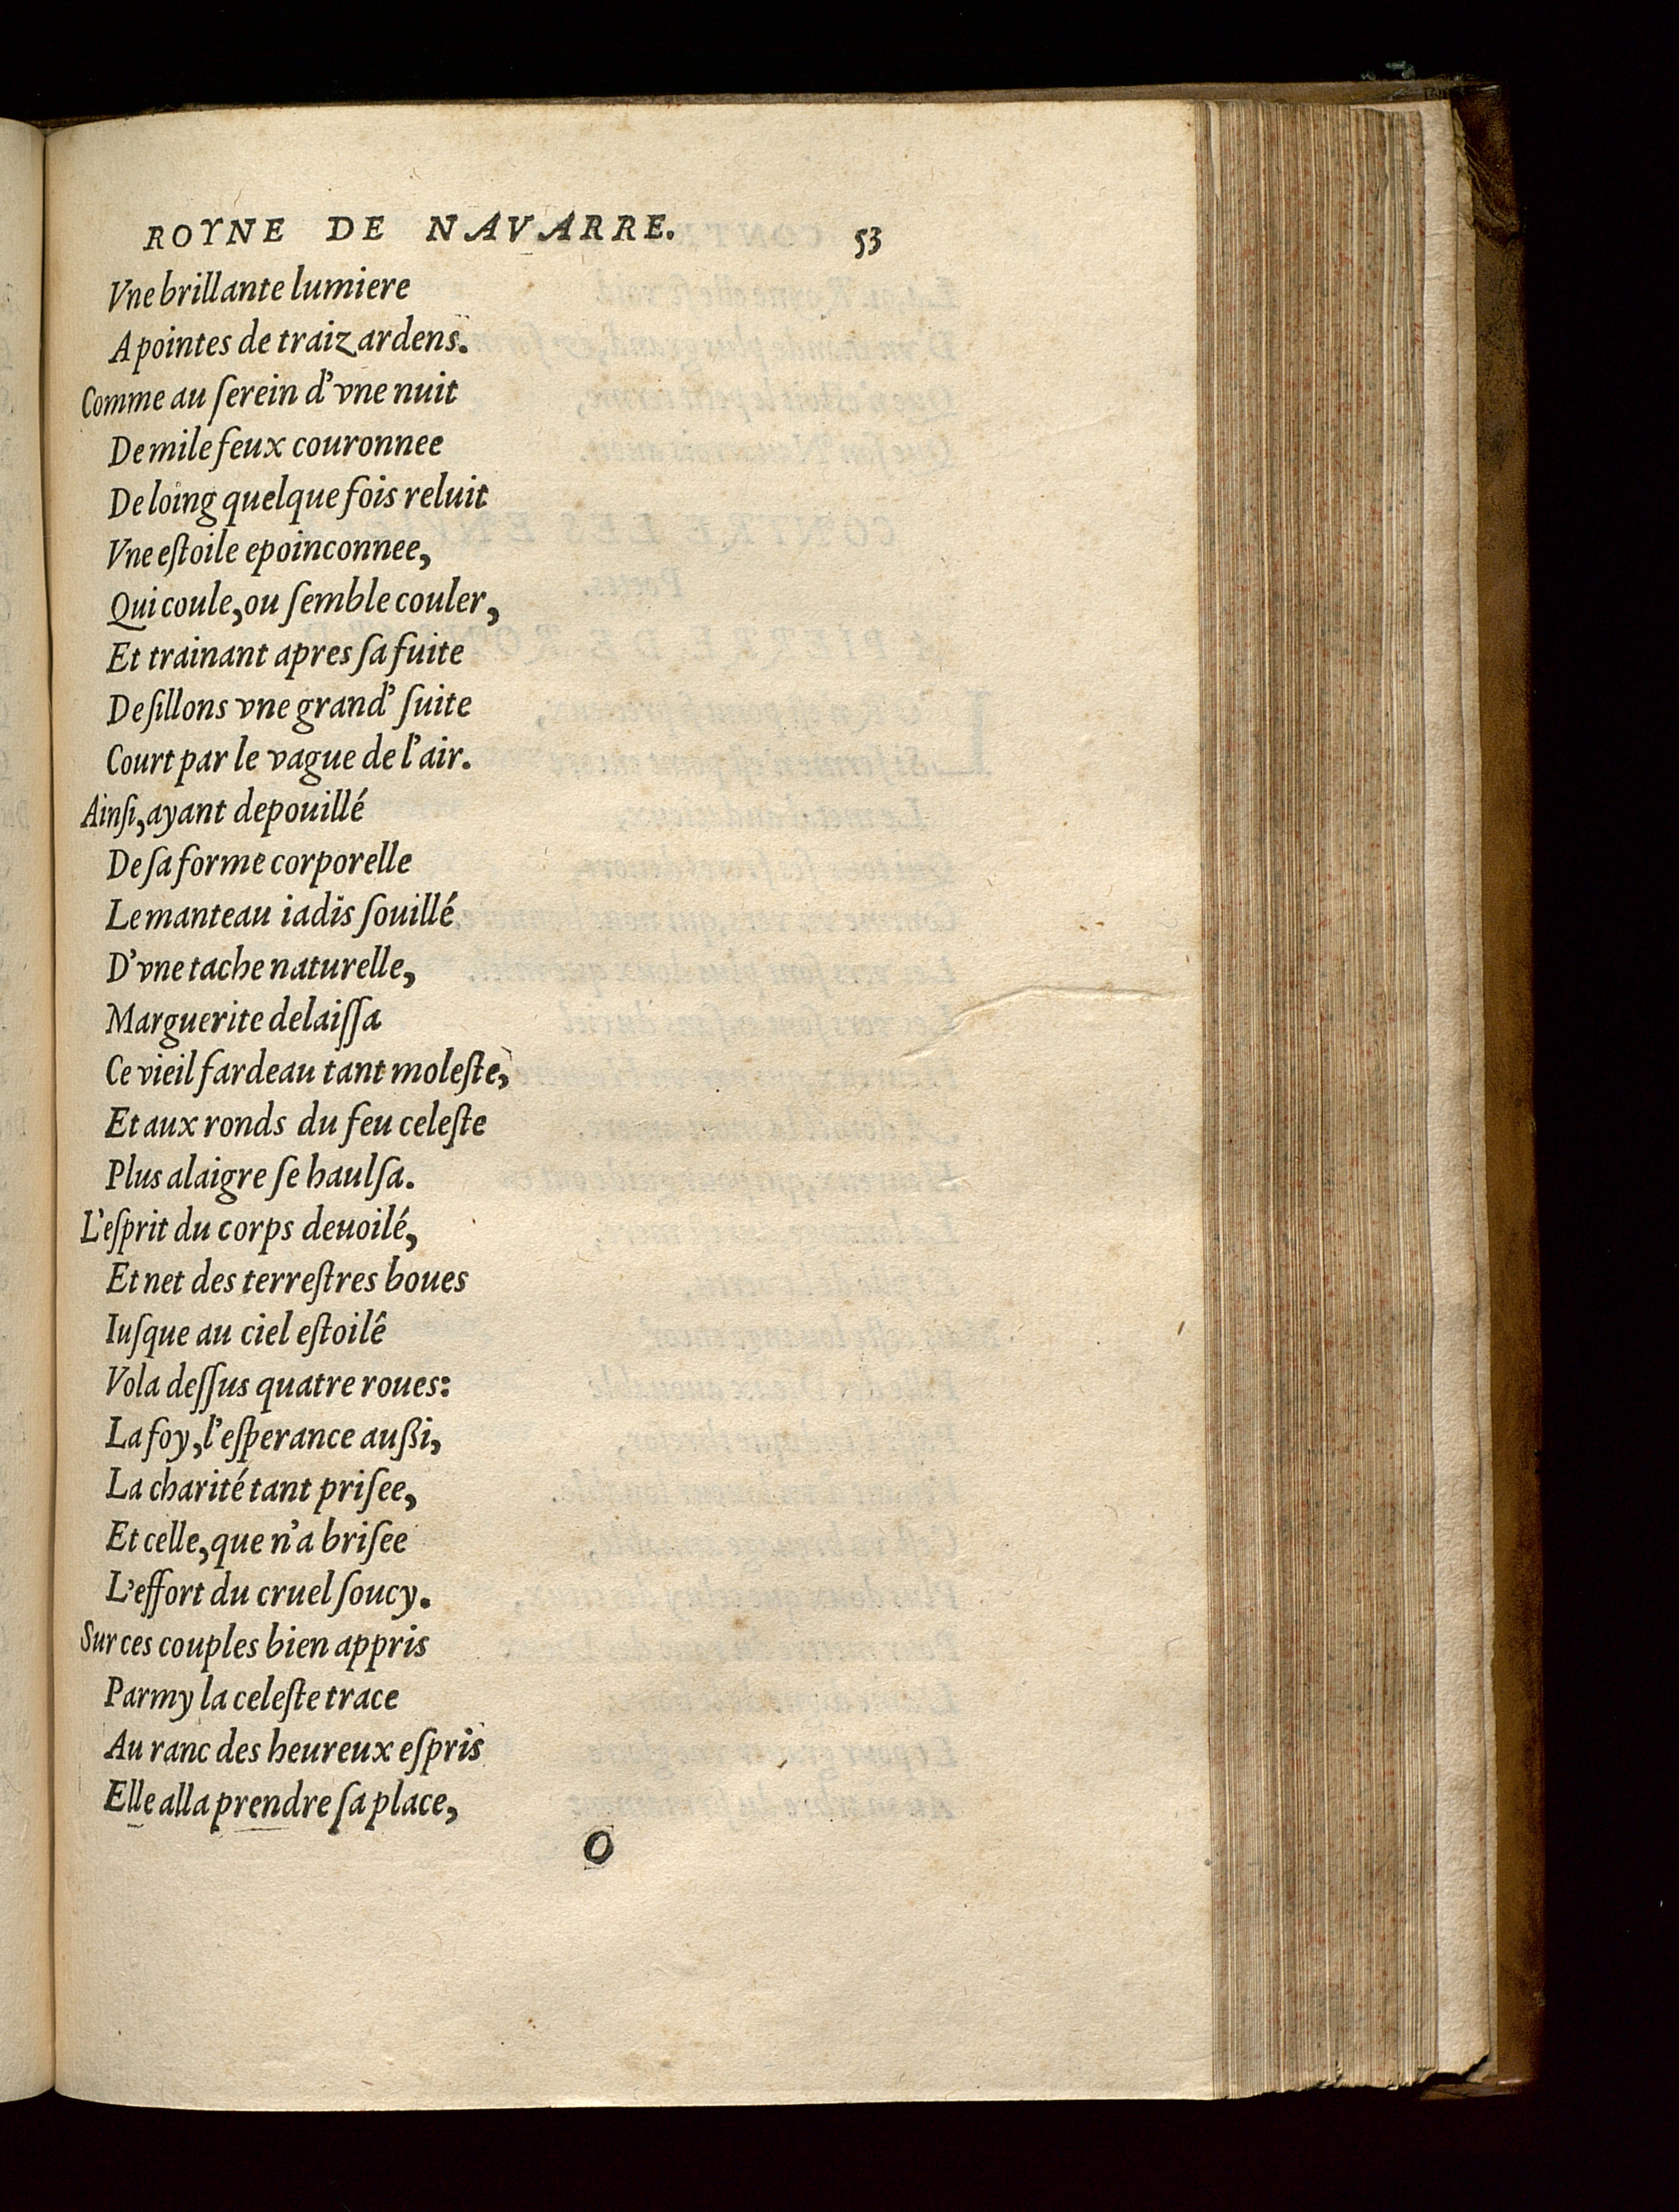 ROYNE DE NAVARRE. 53
Vne brillante lumiere
A pointes de traiz ardens.
Comme au ſerein d'vne nuit
De mile feux couronnee
De loing quelque fois reluit
Vne eſtoile epoinconnee,
Qui coule, ou ſemble couler,
Et trainant apres ſa fuite
De ſillons vne grand' ſuite
Court par le vague de l'air.
Ainſi, ayant depouillé
De ſa forme corporelle
Le manteau iadis ſouillé
D'vne tache naturelle,
Marguerite delaiſſa
Ce vieil fardeau tant moleſte,
Et aux ronds du feu celeſte
Plus alaigre ſe haulſa.
L'eſprit du corps deuoilé,
Et net des terreſtres boues
Iuſque au ciel eſtoilê
Vola deſſus quatre roues:
La foy, l'eſperance außi,
La charité tant priſee,
Et celle, que n'a briſee
L'effort du cruel ſoucy.
Sur ces couples bien appris
Parmy la celeſte trace
Au ranc des heureux eſpris
Elle alla prendre ſa place,
O